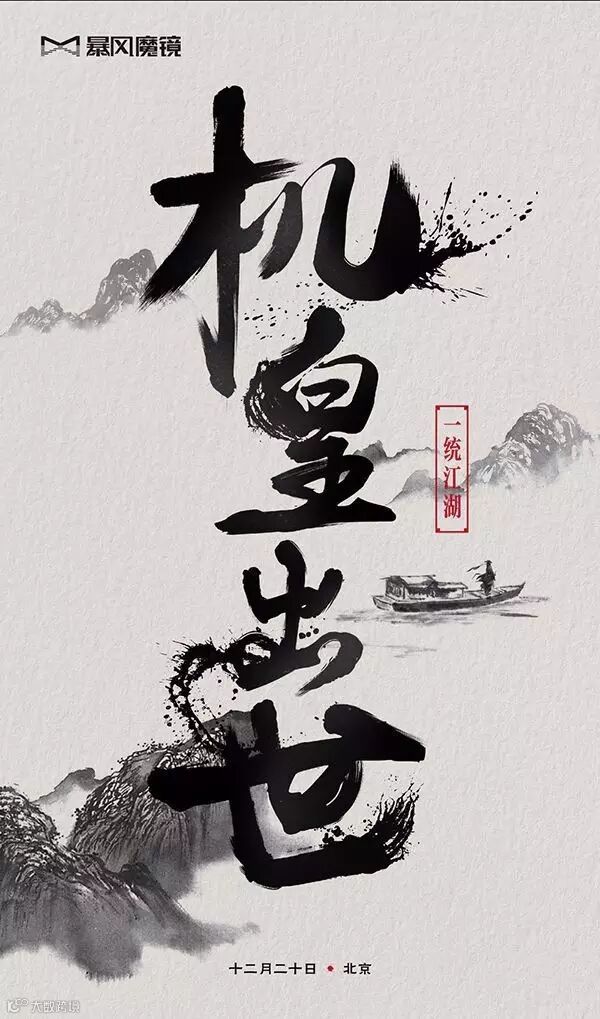 暴风魔镜
机皇出世
一统江湖
十二月二十日·北京
大数跨境